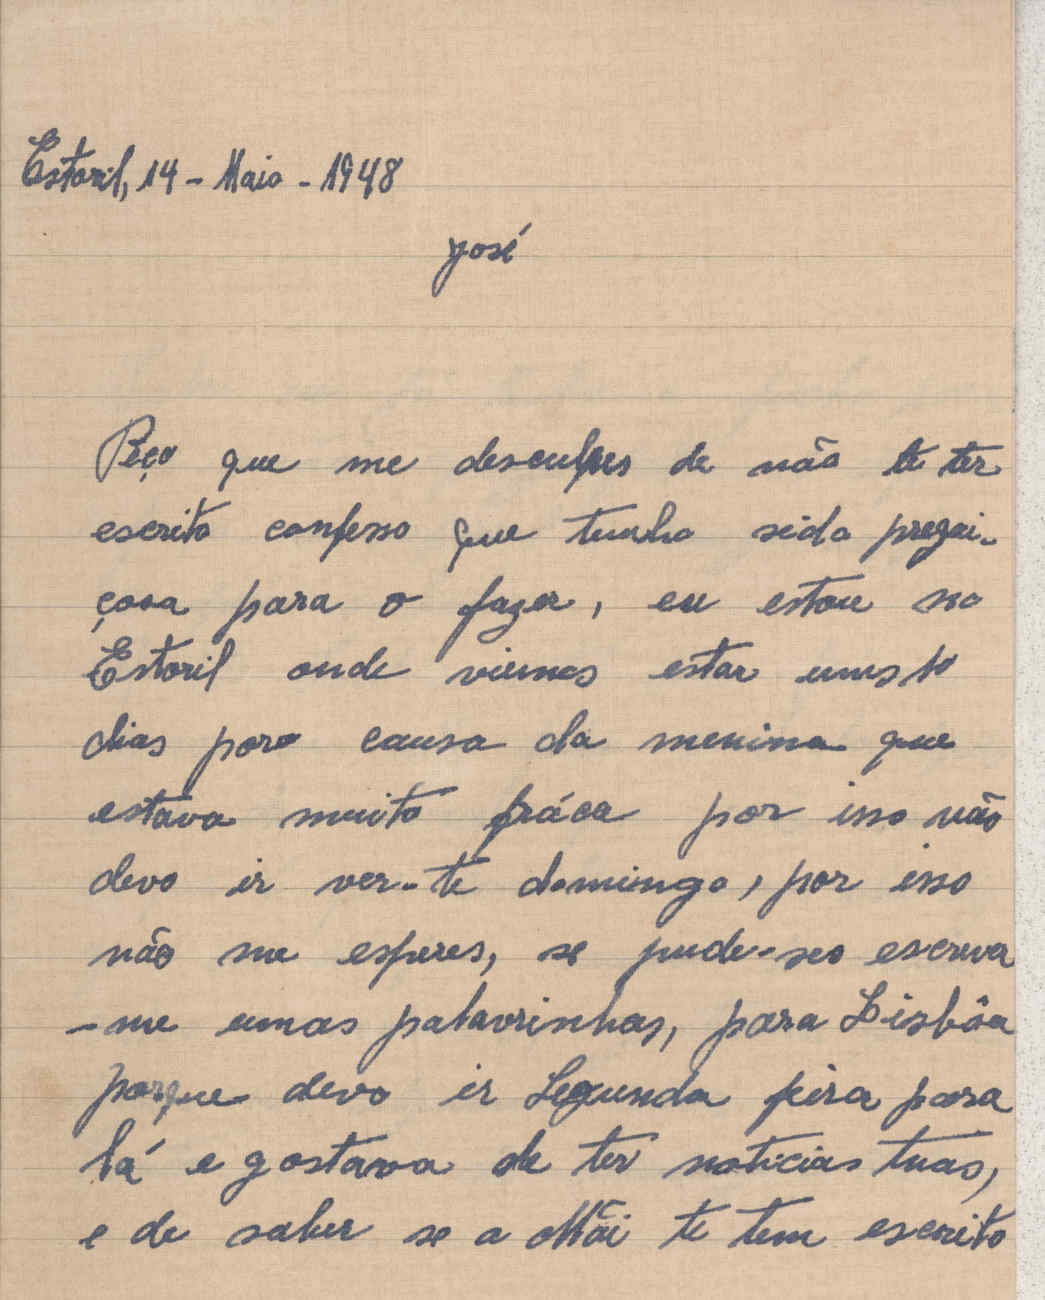 Estoril, 14 - Maio - 1948
José
Peço que me desculpes de não te ter
escrito confesso que tenho sido pregui-
çosa para o fazer, eu estou no
Estoril onde viemos estar uns 10
dias por causa da menina que
estava muito fráca por isso não
devo ir ver-te domingo, por isso
não me esperes, se pude-res escreva
-me umas palavrinhas, para Lisbôa
porque devo ir Segunda feira para
lá e gostava de ter noticias tuas,
e de saber se a Mãi te tem escrito